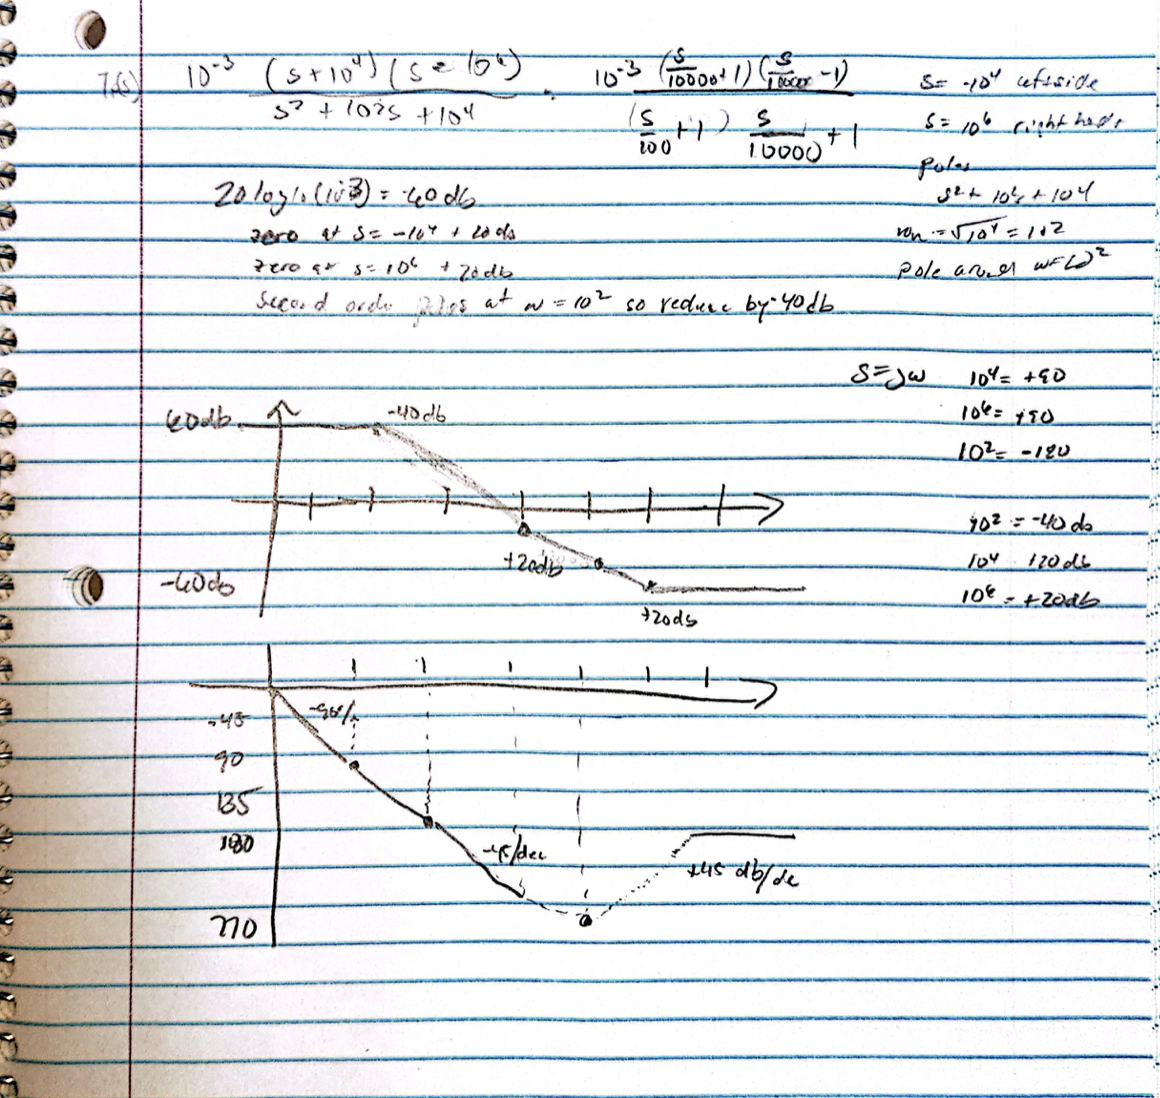 T(s) 10^-3 (s + 10^4) (s - 10^6) / s^2 + 10^2s + 10^4 = 10^-3 (s/10000 + 1) / (s/100 + 1) s/10000 + 1
s = -10^4 leftside
s = 10^6 right
poles
s^2 + 10^2s + 10^4
= √10^4 = 10^2
pole around w=10^2
20 log10 (10^-3) = -60 db
zero at s = -10^4 + 20 db
zero at s = 10^6 + 20db
Second orde poles at w = 10^2 so reduce by -40 db
S = jw
10^4 = +90
10^6 = +90
10^2 = -180
10^2 = -40 db
10^4 +20 db
10^6 = +20db
60db
-40 db
+20db
-60db
+20db
-45
-90/
90
135
180
-45/dec
+45 db/de
270